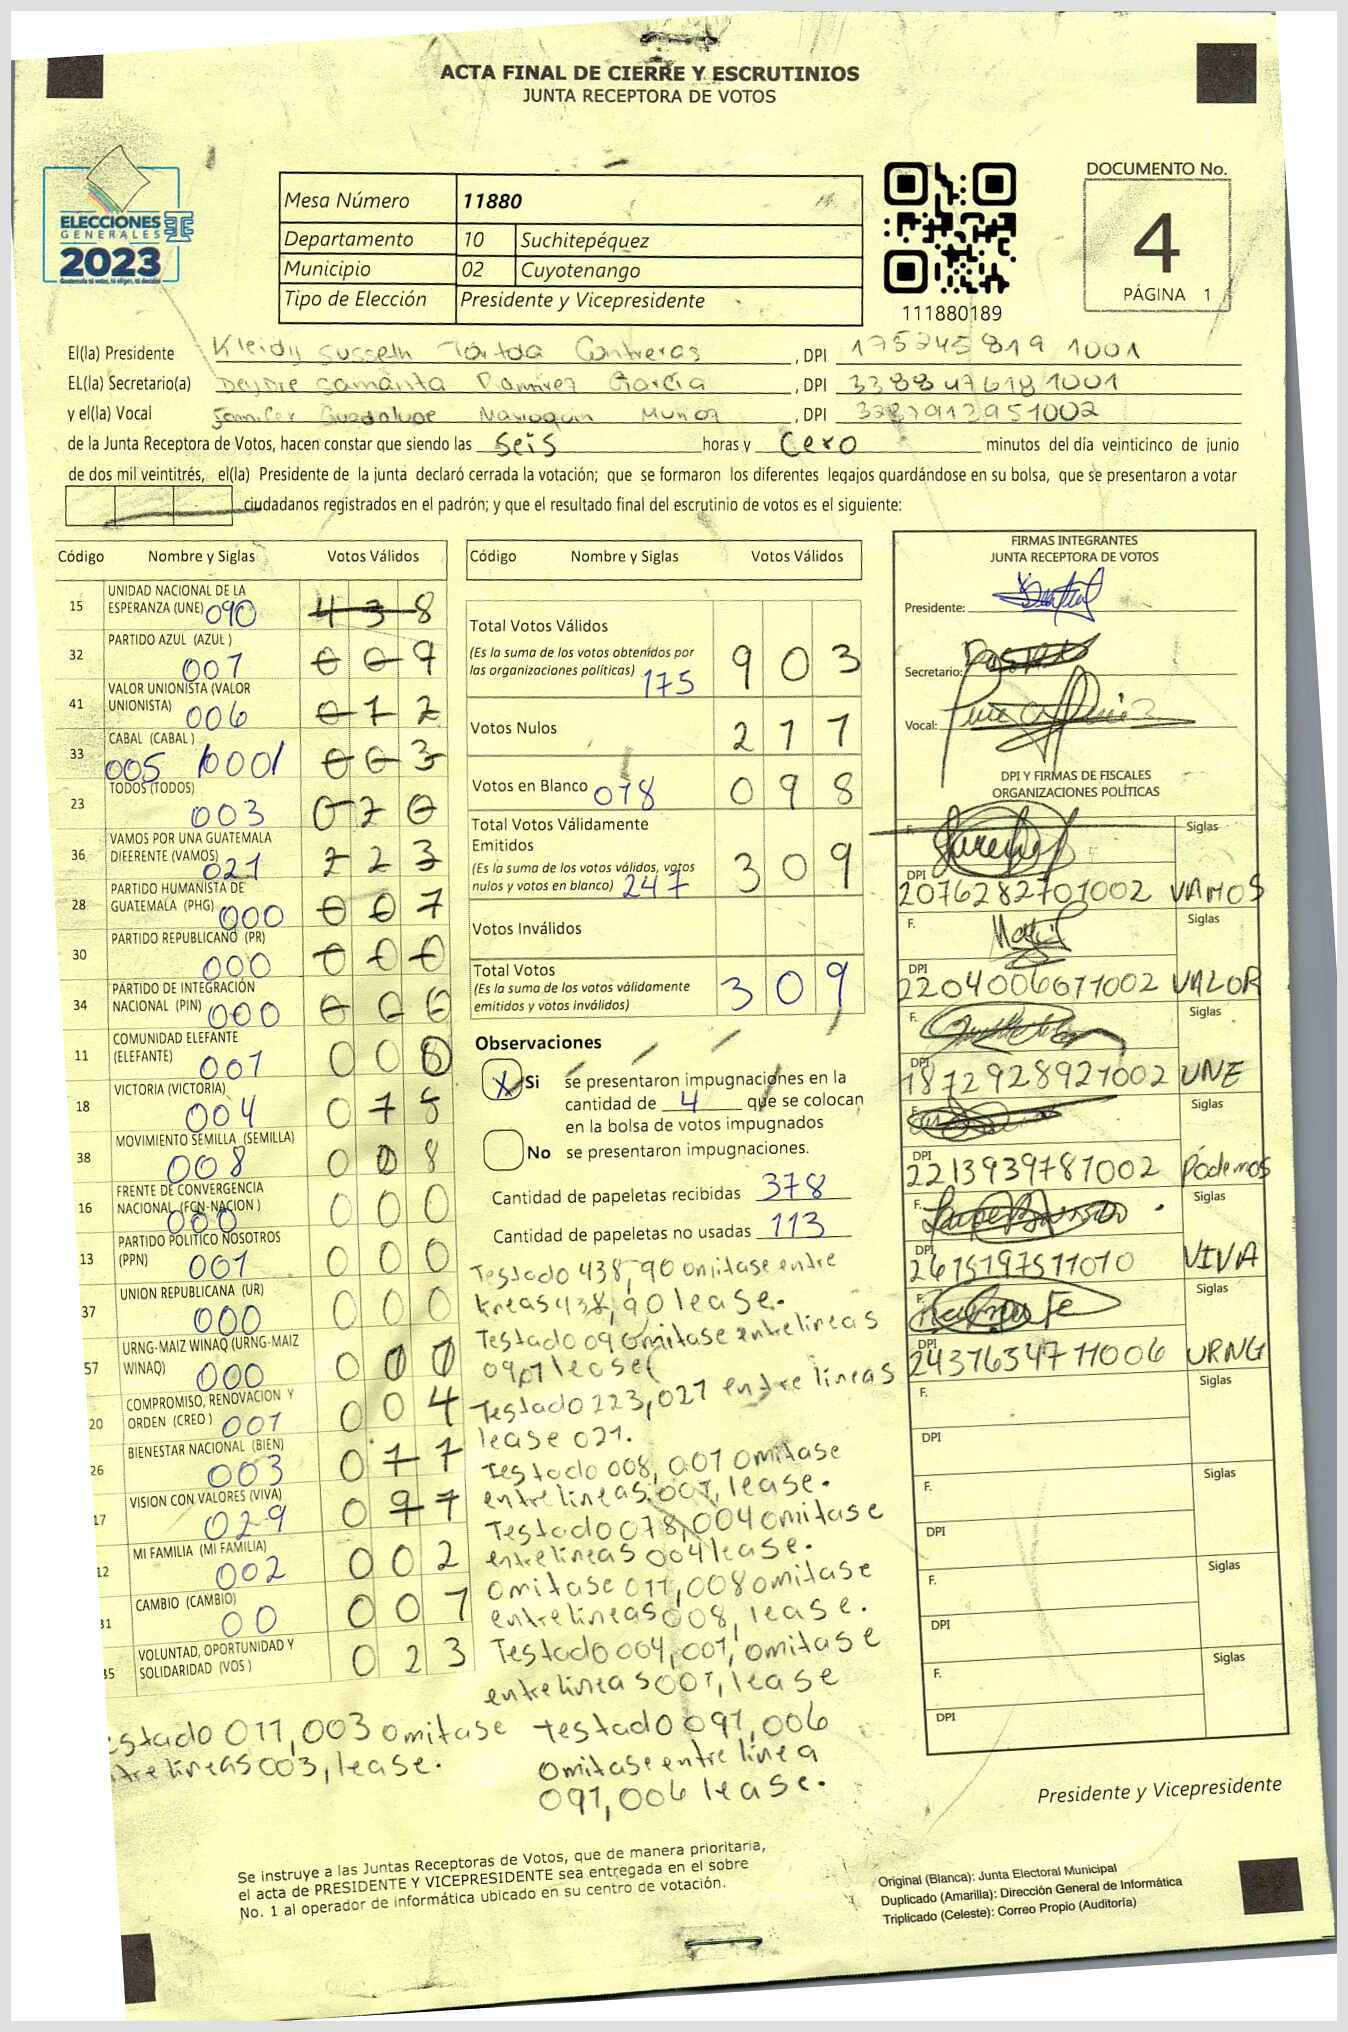 ACTA FINAL DE CIERRE Y ESCRUTINIOS
JUNTA RECEPTORA DE VOTOS
ELECCIONES
GENERALES
2023
Mesa Número 11880
Departamento 10 Suchitepéquez
Municipio 02 Cuyotenango
Tipo de Elección Presidente y Vicepresidente
111880189
DOCUMENTO No.
4
PÁGINA 1
El(la) Presidente Kleidy Contreras , DPI 175245819 1001
EL(la) Secretario(a) Samanta Ramirez García , DPI 338847618 1001
y el(la) Vocal Jennifer Guadalupe Muñoz , DPI
de la Junta Receptora de Votos, hacen constar que siendo las Seis horas y Cero minutos del día veinticinco de junio
de dos mil veintitrés, el(la) Presidente de la junta declaró cerrada la votación; que se formaron los diferentes legajos quardándose en su bolsa, que se presentaron a votar
ciudadanos registrados en el padrón; y que el resultado final del escrutinio de votos es el siguiente:
Código Nombre y Siglas Votos Válidos
15 UNIDAD NACIONAL DE LA
ESPERANZA (UNE) 090 438
32 PARTIDO AZUL (AZUL )
007 009
41 VALOR UNIONISTA (VALOR
UNIONISTA) 006 012
33 CABAL (CABAL )
005 0001 003
23 TODOS (TODOS)
003 020
36 VAMOS POR UNA GUATEMALA
DIFERENTE (VAMOS) 021 223
28 PARTIDO HUMANISTA DE
GUATEMALA (PHG) 000 007
30 PARTIDO REPUBLICANO (PR)
000 000
34 PARTIDO DE INTEGRACIÓN
NACIONAL (PIN) 000 000
11 COMUNIDAD ELEFANTE
(ELEFANTE) 001 008
18 VICTORIA (VICTORIA)
004 078
38 MOVIMIENTO SEMILLA (SEMILLA)
008 008
16 FRENTE DE CONVERGENCIA
NACIONAL (FCN-NACION ) 000 000
13 PARTIDO POLITICO NOSOTROS
(PPN) 001 000
37 UNION REPUBLICANA (UR)
000 000
57 URNG-MAIZ WINAQ (URNG-MAIZ
WINAQ) 000 000
20 COMPROMISO, RENOVACION Y
ORDEN (CREO ) 001 004
26 BIENESTAR NACIONAL (BIEN)
003 077
17 VISION CON VALORES (VIVA)
029 097
12 MI FAMILIA (MI FAMILIA)
002 002
31 CAMBIO (CAMBIO)
00 007
35 VOLUNTAD, OPORTUNIDAD Y
SOLIDARIDAD (VOS ) 023
Código Nombre y Siglas Votos Válidos
Total Votos Válidos
(Es la suma de los votos obtenidos por
las organizaciones políticas) 175 903
Votos Nulos 217
Votos en Blanco 018 098
Total Votos Válidamente
Emitidos
(Es la suma de los votos válidos, votos
nulos y votos en blanco) 247 309
Votos Inválidos
Total Votos
(Es la suma de los votos válidamente
emitidos y votos inválidos) 309
Observaciones
X Si se presentaron impugnaciones en la
cantidad de 4 que se colocan
en la bolsa de votos impugnados
No se presentaron impugnaciones.
Cantidad de papeletas recibidas 378
Cantidad de papeletas no usadas 113
Testado 438, 90 omitase entre
lineas 438, 90 lease.
Testado 09 omitase entre lineas
lease
Testado 223, 021 entre lineas
lease 021.
Testado 008, 001 omitase
entre lineas, 001, lease.
Testado 078, 004 omitase
entre lineas 004 lease.
omitase 011, 008 omitase
entre lineas 008, lease.
Testado 004, 001, omitase
entre lineas 001, lease
estado 011, 003 omitase
entre lineas 003, lease.
testado 091, 006
omitase entre linea
091, 006 lease.
FIRMAS INTEGRANTES
JUNTA RECEPTORA DE VOTOS
Presidente:
Secretario:
Vocal:
DPI Y FIRMAS DE FISCALES
ORGANIZACIONES POLÍTICAS
F. Siglas
DPI 2076282701002 VAMOS
F. Siglas
DPI 2204006071002 VALOR
F. Siglas
DPI 1872928921002 UNE
F. Siglas
DPI 2213939781002 Podemos
F. Siglas
DPI 2615197511010 VIVA
F. Siglas
DPI 2437634711006 URNG
F. Siglas
DPI
F. Siglas
DPI
F. Siglas
DPI
F. Siglas
DPI
Presidente y Vicepresidente
Se instruye a las Juntas Receptoras de Votos, que de manera prioritaria,
el acta de PRESIDENTE Y VICEPRESIDENTE sea entregada en el sobre
No. 1 al operador de informática ubicado en su centro de votación.
Original (Blanca): Junta Electoral Municipal
Duplicado (Amarilla): Dirección General de Informática
Triplicado (Celeste): Correo Propio (Auditoría)